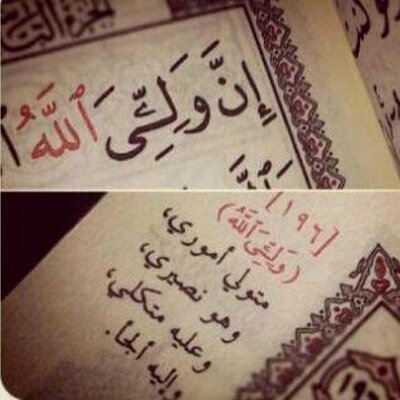 الجزء التاسع
إِنَّ وَلِـِّۧيَ ٱللَّهُ
[١٩٦]
(وَلِـِّۧيَ ٱللَّهُ)
متولي أموري،
وهو نصيري،
وعليه متكلي،
وإليه ألجأ.